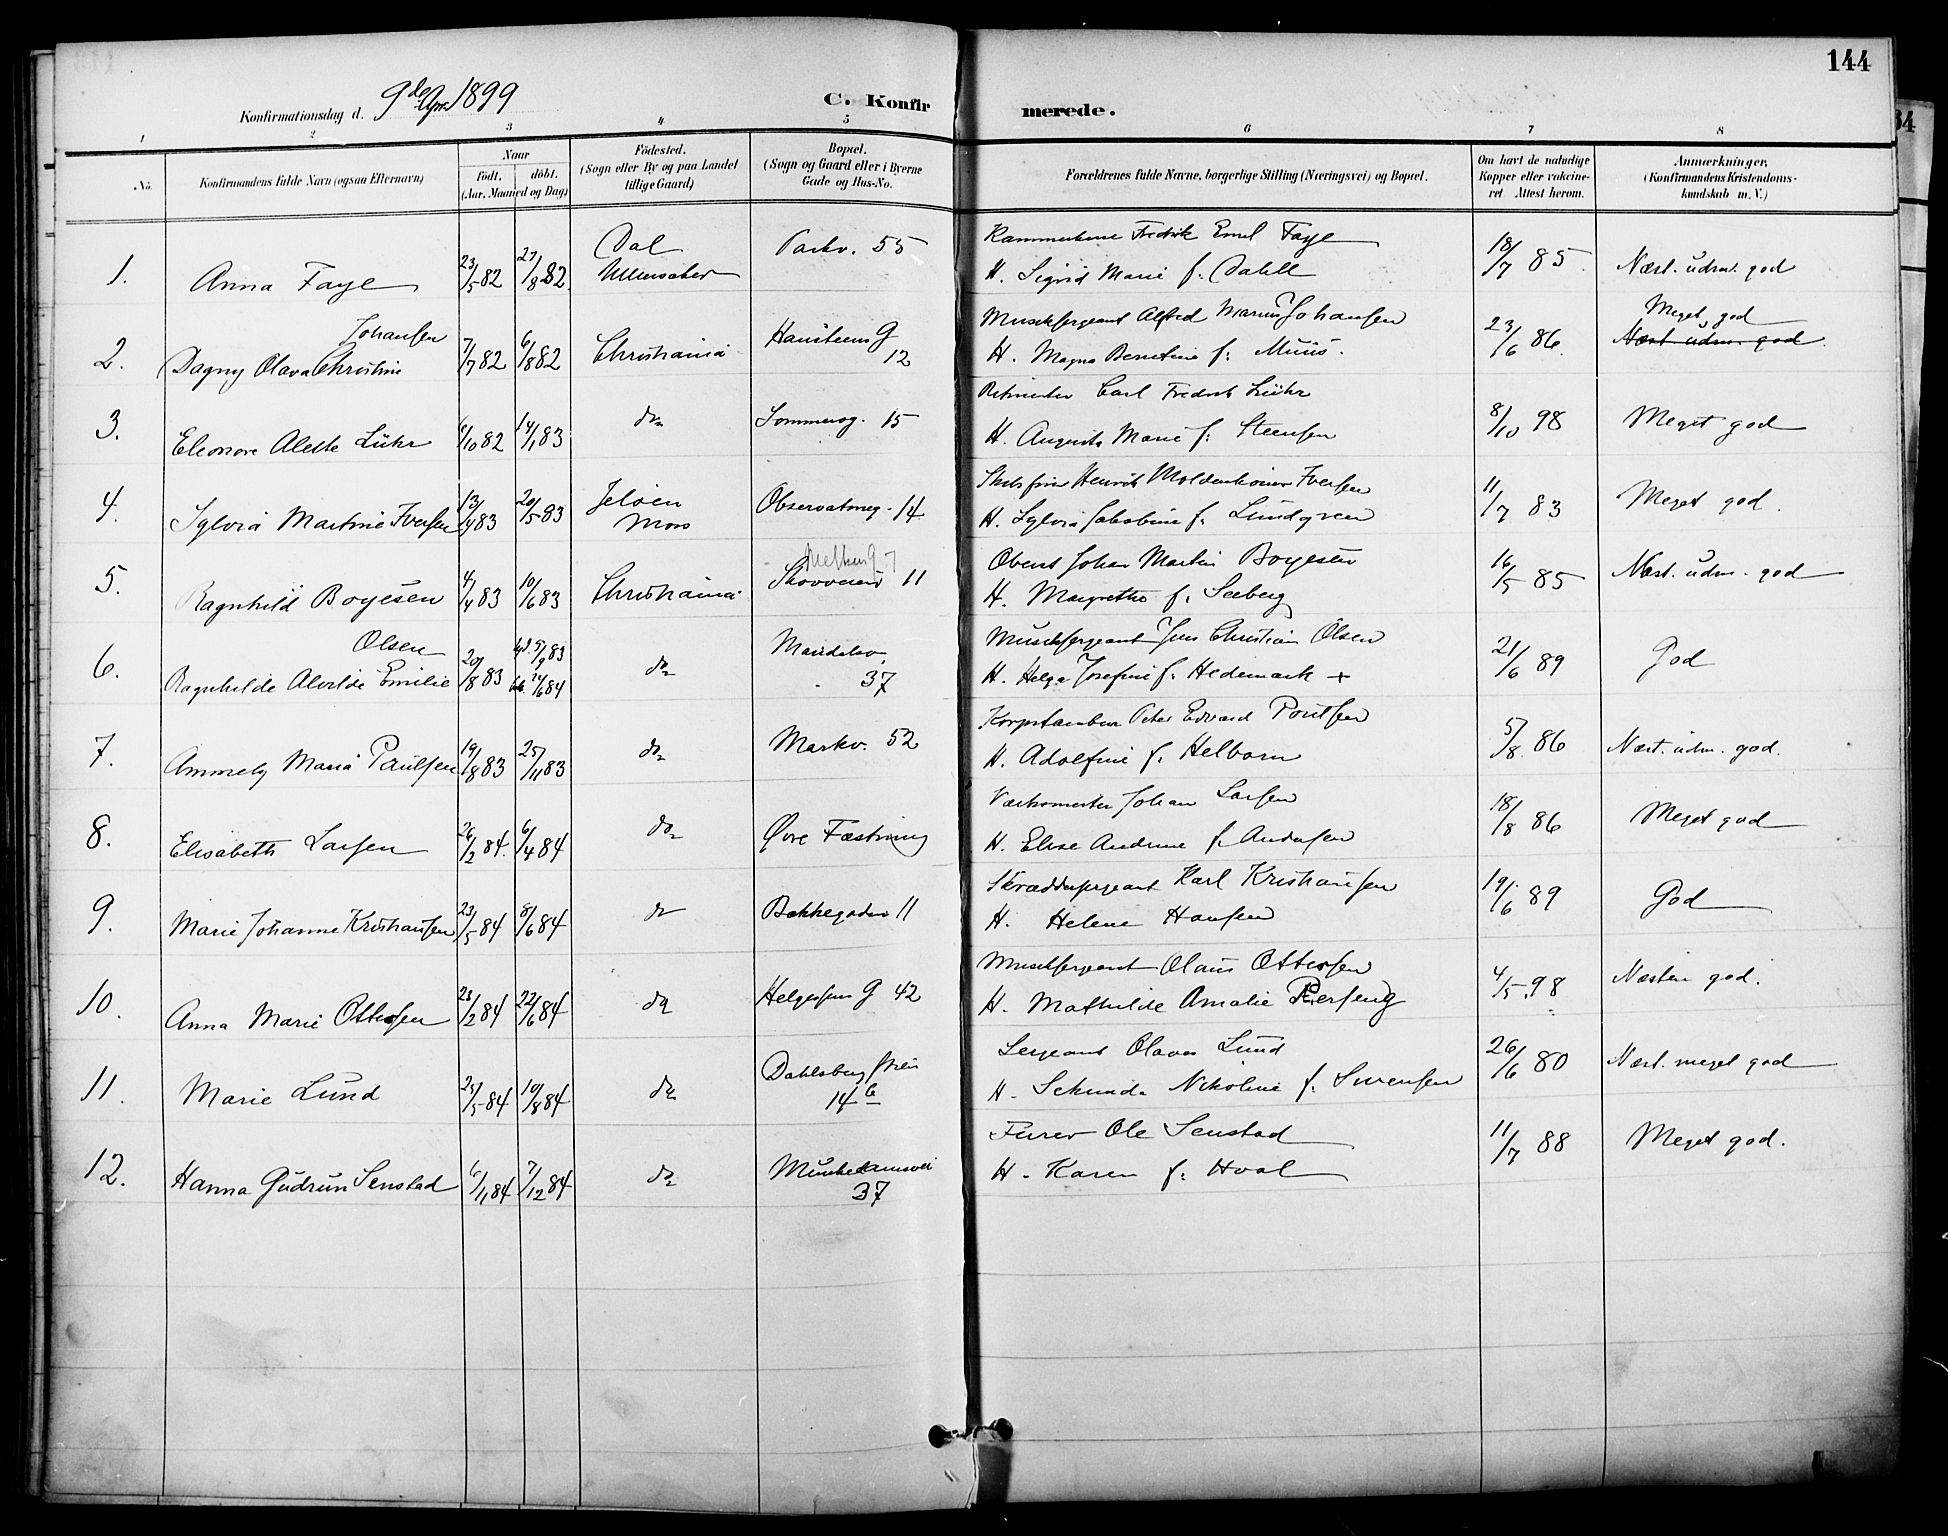 144
Konfirmationsdag d. 9de Apr. 1899
C. Konfirmerede.
1 2 3 4 5 6 7 8
No. Konfirmandens fulde Navn (ogsaa Efternavn) Naar født. døbt. (Aar, Maaned og Dag) Fødested. (Sogn eller By og paa Landet tillige Gaard) Bopæl. (Sogn og Gaard eller i Byerne Gade og Hus-No. Forældrenes fulde Navne, borgerlige Stilling (Næringsvei) og Bopæl. Om havt de naturlige Kopper eller vakcineret Attest herom. Anmærkninger. (Konfirmandens Kristendomskundskab m. V.)
1. Anna Faye 23/5 82 27/8 82 Dal Ullensaker Parkv. 55 Fredrik Emil Faye H. Sigrid Marie f. Dahll 18/7 85. Næst. udm. god
2. Dagny Olava Christine Johansen 7/7 82 6/8 82 Christiania Hausteens G 12 Musiksergeant Alfred Marius Johansen H. Magna Berntine f. Muus. 23/6 86. Meget god Næst udm. god.
3. Eleonore Alette Lühr 6/10 82 14/1 83 do Sommerog. 15 Carl Fredrik Lühr H. Augusta Marie f. Steensen 8/10 98 Meget god
4. Sylvia Martine Iversen 13/4 83 20/5 83 Jeløen Moss Observatrieg. 14 Henrik Moldenhauer Iversen H. Sylvia Jakobine f. Lundgreen 11/7 83 Meget god.
5. Ragnhild Boyesen 4/4 83 10/6 83 Christiania Skovveien 11 7 Oberst Johan Martin Boyesen H. Margrethe f. Seeberg 16/5 85 Næst. udm. god
6. Ragnhilde Alvilde Emilie Olsen 20/8 83 5/9 83 6 84 do Maridalsv. 37 Musiksergeant Jens Christian Olsen H. Helga Josefine f. Hedemark + 21/6 89 God
7. Ammely Maria Paulsen 19/8 83 25/11 83 do Markv. 52 Korpstambur Peter Edvard Poulsen H. Adolfine f. Helborn 5/8 86 Næst. udm. god.
8. Elisabeth Larsen 26/2 84. 6/4 84 do Øvre Fæstning Værksmester Johan Larsen H. Elise Andrine f. Andersen 18/8 86 Meget god
9. Marie Johanne Kristiansen 23/5 84 8/6 84 do Bakkegaden 11 Skræddersergeant Karl Kristiansen H. Helene Hansen 19/6 89 God
10. Anna Marie Ottesen 23/2 84 22/6 84 do Helgesens G 42 Musiksergeant Olaus Ottesen H. Mathilde Amalie 4/5 98 Næsten god.
11. Marie Lund 25/5 84 10/8 84 do Dahlsbergstien 14 b Sergeant Olaves Lund H. Sekunda Nikoline f. Sørensen 26/6 80 Næst. meget god
12. Hanna Gudrun Senstad 6/11 84 7/12 84 do Munkedamsvei 37 Furer Ole Senstad H. Karen f. Hval 11/7 88 Meget god.